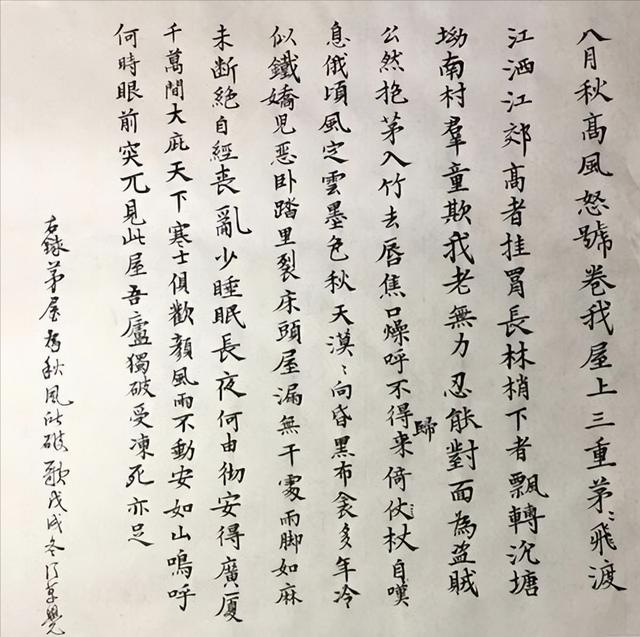 八月秋高風怒號卷我屋上三重茅〻飛渡
江洒江郊高者挂罥長林梢下者飄轉沉塘
坳南村羣童欺我老無力忍能對面為盜賊
公然抱茅入竹去唇焦口燥呼不得歸来倚仗杖自嘆
息俄頃風定雲墨色秋天漠〻向昏黑布衾多年冷
似鐵嬌兒惡卧踏里裂床頭屋漏無干處雨脚如麻
未断絕自經喪亂少睡眠長夜何由彻安得廣厦
千萬間大庇天下寒士俱歡顏風雨不動安如山嗚呼
何時眼前突兀見此屋吾廬獨破受凍死亦足
右錄茅屋為秋風所破歌戊戌冬